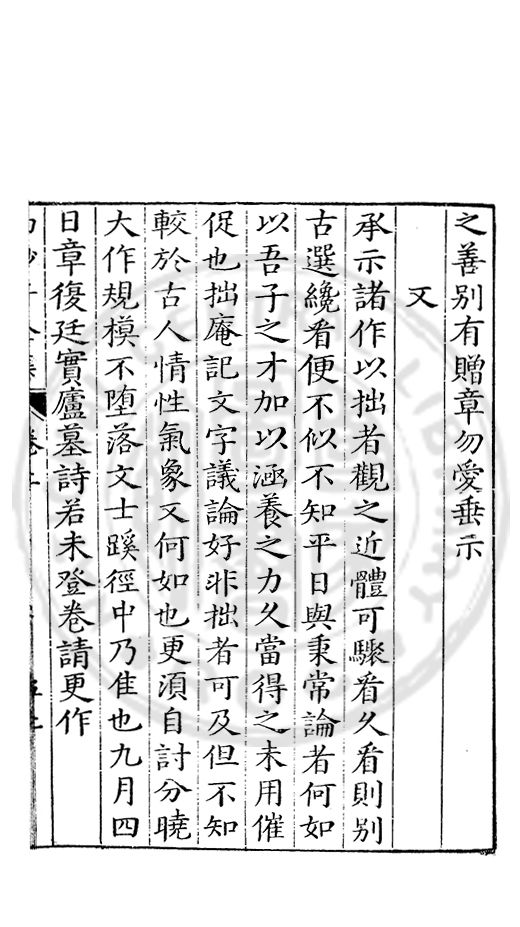 之善別有贈章勿愛垂示
又
承示諸作以拙者觀之近體可驟看久看則別
古選纔看便不似不知平日與秉常論者何如
以吾子之才加以涵養之力久當得之未用催
促也拙庵記文字議論好非拙者可及但不知
較於古人情性氣象又何如也更湏自討分曉
大作規模不墮落文士蹊徑中乃隹也九月四
日章復廷實廬墓詩若未登卷請更作